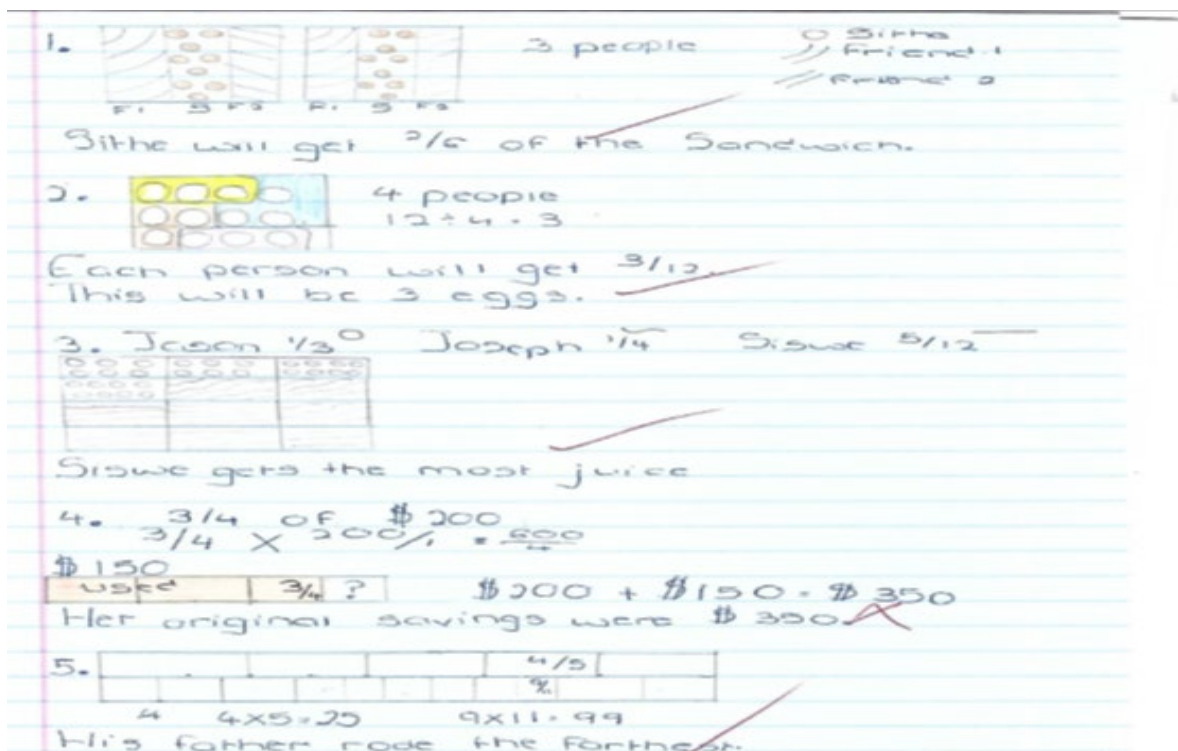 1. 3 people O Sithe
Friend 1
Friend 2
F1 S F2 F1 S F2
Sithe will get 2/6 of the Sandwich.
2. 4 people
12 ÷ 4 = 3
Each person will get 3/12.
This will be 3 eggs.
3. Jason 1/3 O Joseph 1/4 Siswe 5/12
Siswe gets the most juice
4. 3/4 of $200
3/4 X 200/1 = 600/4
$150
used 3/4 ? $200 + $150 = $350
Her original savings were $350
5. 4/5
4 4x5=25 9x11=99
His father rode the farthest.